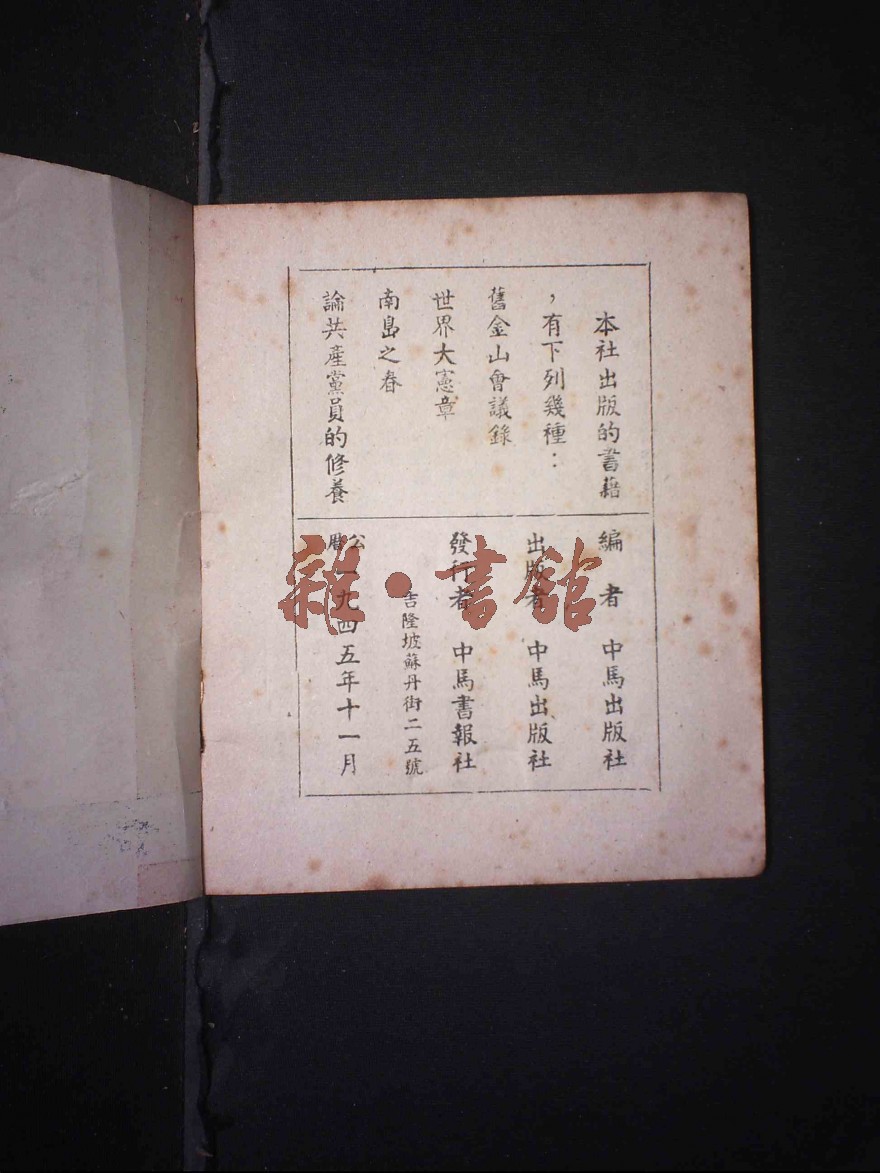 本社出版的書籍
，有下列幾種：
舊金山會議錄
世界大憲章
南島之春
論共產黨員的修養
編者　中馬出版社
出版者　中馬出版社
發行者　中馬書報社
吉隆坡蘇丹街二五號
公曆一九四五年十一月
雜·書館